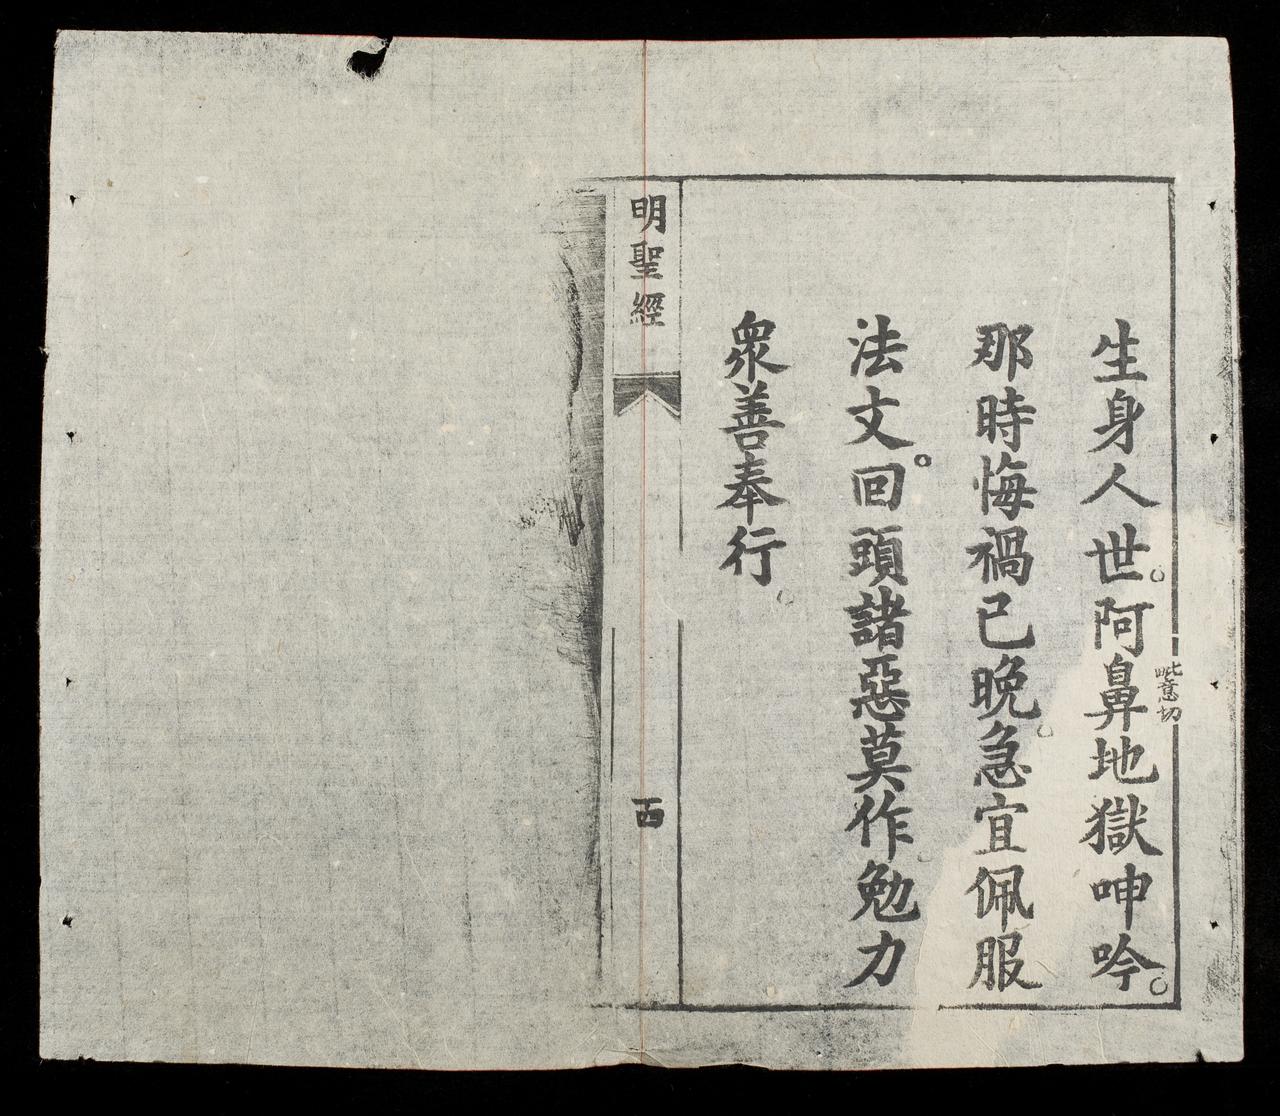 生身人世。阿鼻地獄呻吟。
毗意切
那時悔禍已晚。急宜佩服
法文。回頭諸惡莫作勉力
衆善奉行。
明聖經